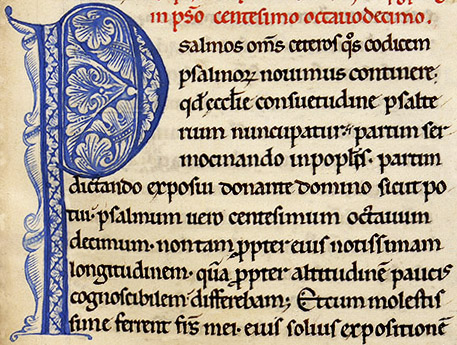 in pso centesimo octauodecimo.
Psalmos oms ceteros qs codicem
psalmoꝝ nouimus continere;
qd ecclie consuetudine psalte
rium nuncupatur partim ser
mocinando in poplis. partim
dictando exposui donante domino sicut po
tui. psalmum uero centesimum octauum
decimum. non tam ꝓpter eius notissimam
longitudinem. quā ꝓpter altitudinē paucis
cognoscibilem differebam; Et cum molestis
sime ferrent frs mei. eius solius expositionē